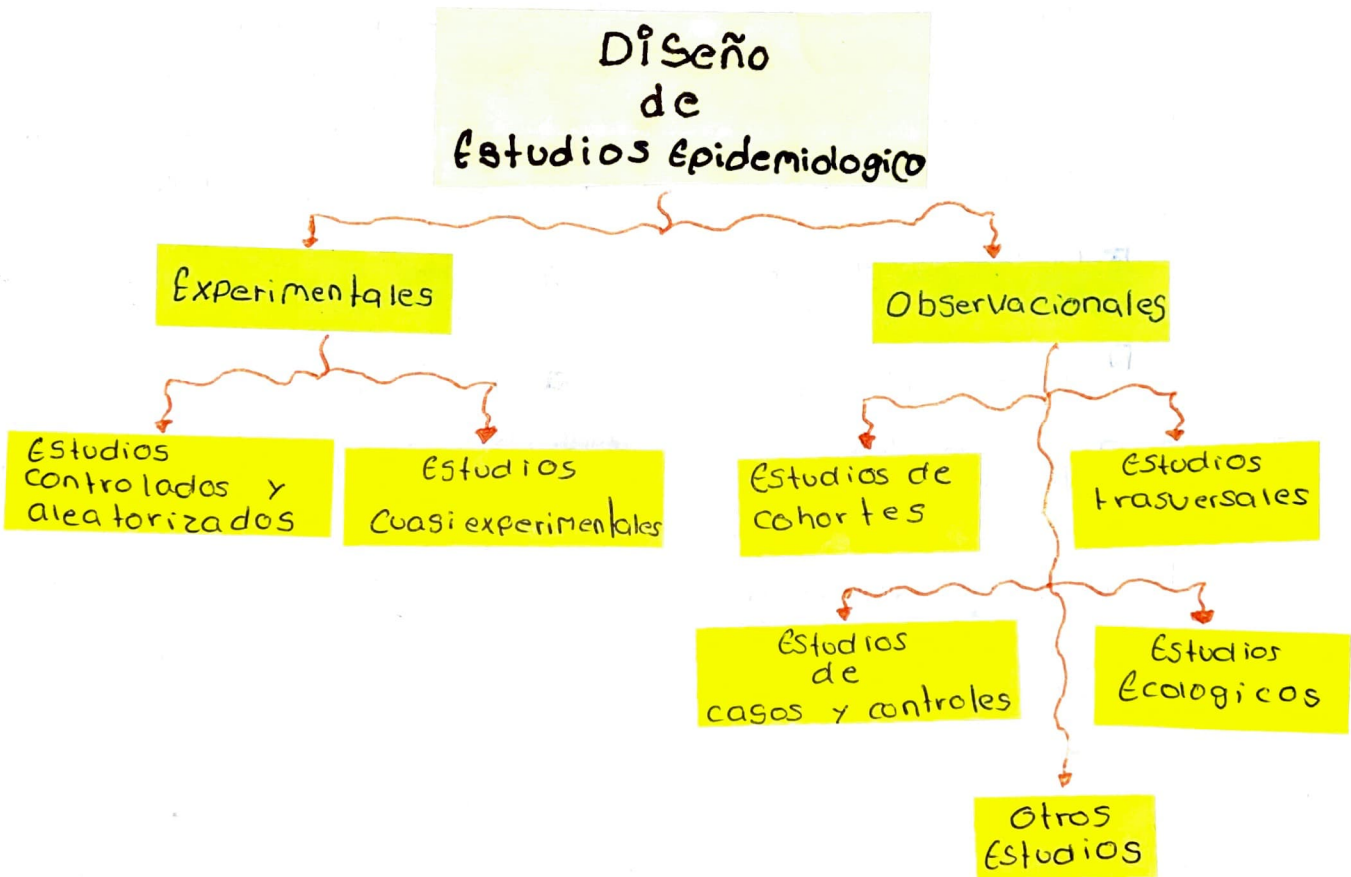 Diseño
de
Estudios Epidemiologico
Experimentales
Observacionales
Estudios
controlados y
aleatorizados
Estudios
Cuasiexperimentales
Estudios de
cohortes
Estudios
trasversales
Estudios
de
casos y controles
Estudios
Ecologicos
Otros
Estudios